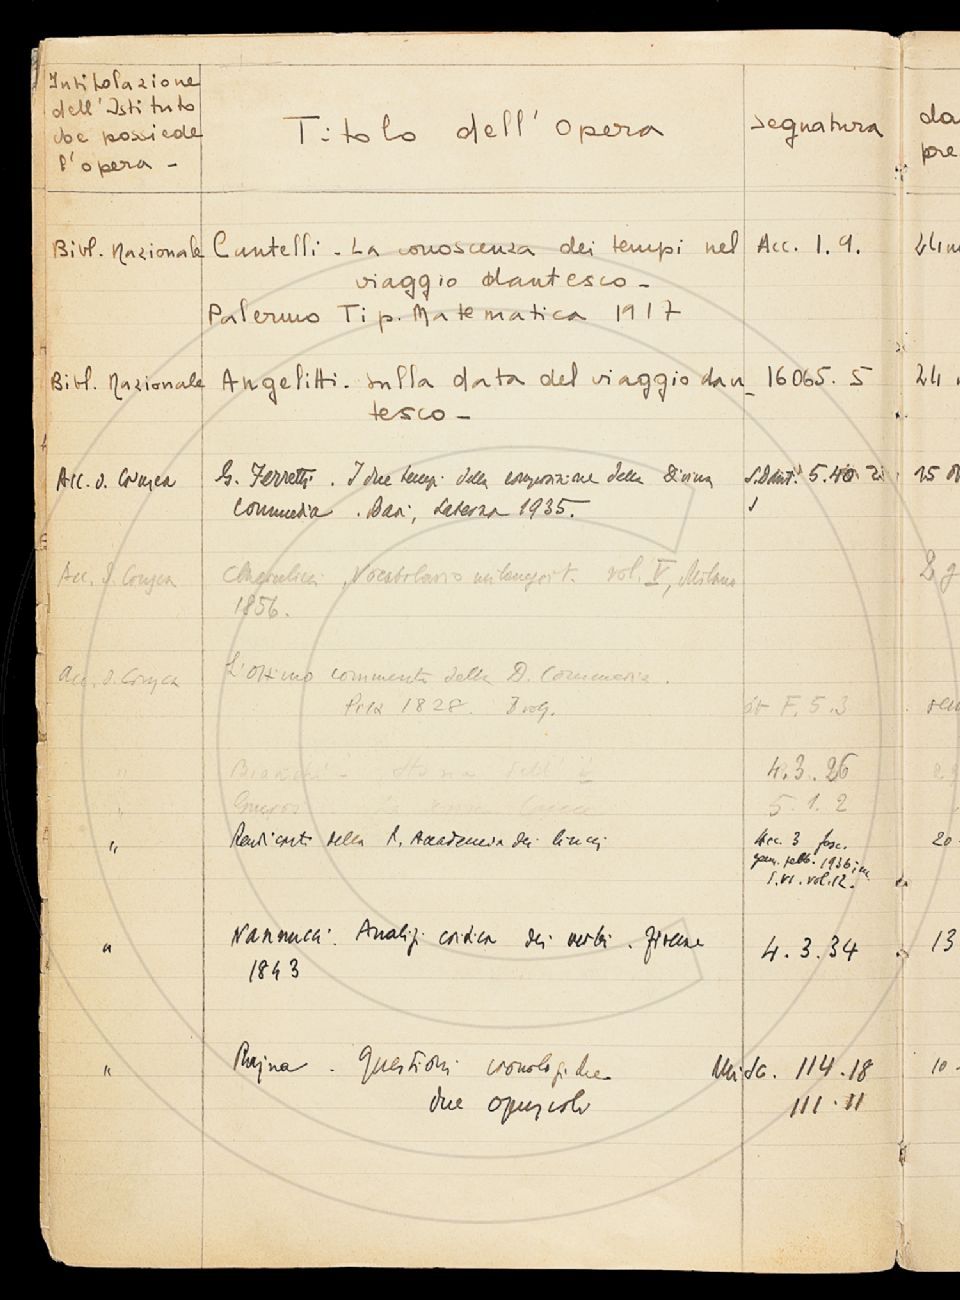 Intitolazione
dell'Istituto
che possiede
l'opera -
Titolo dell'opera
segnatura
da
pre
Bibl. Nazionale Cantelli - La conoscenza dei tempi nel Acc. 1. 9. 24
viaggio dantesco -
Palermo Tip. Matematica 1917
Bibl. Nazionale Angelitti. Sulla data del viaggio dan_ 16065. 5 24
tesco -
Acc. d. Crusca G. Ferretti. I due tempi della composizione della Divina S. Dant. 5. 15
Commedia. Bari, Laterza 1935.
Acc. d. Crusca Vocabolario vol. V, Milano 2 g
1856.
Acc. d. Crusca L'ottimo commento della D. Commedia.
Pisa 1828. F. 5. 3
" Bianchi - 4. 3. 26
" 5. 1. 2
" Rendiconti della R. Accademia dei Lincei Acc. 3 fasc. 20
1936
s. VI. vol. 12.
" Nannucci. Analisi critica dei verbi. Firenze 4. 3. 34 13
1843
" Rajna. Questioni cronologiche Misc. 114. 18 10
due opuscoli 111. 11